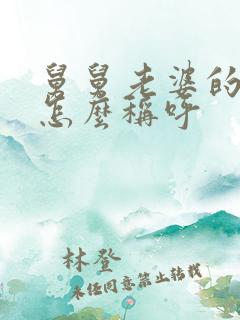 舅舅老婆的
怎麼稱呼
林登
未经同意禁止转载